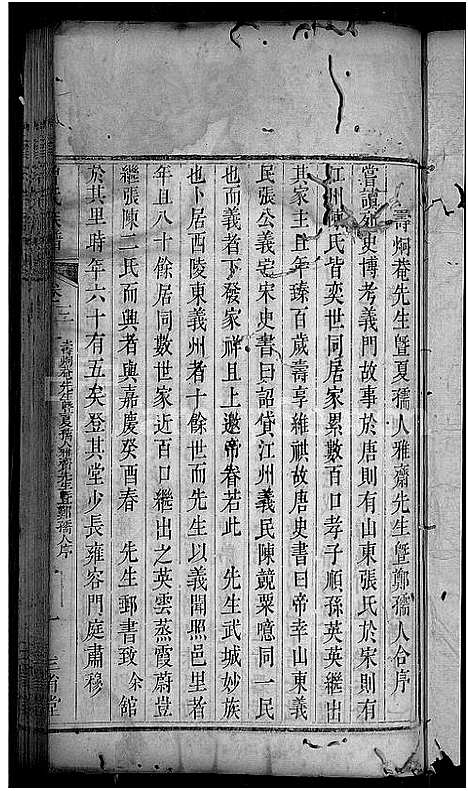 壽炯菴先生暨夏孺人雅齋先生暨鄭孺人合序
嘗讀列史博考義門故事於唐則有山東張氏於宋則有
江州陳氏皆奕世同居家累數百口孝子順孫英英繼出
其家主且年臻百歲壽享維祺故唐史書曰帝幸山東義
民張公義宅宋史書曰詔貸江州義民陳競粟噫同一民
也而義者下發家祥且上邀帝眷若此 先生武城妙族
也卜居西陵東義州者十餘世而先生以義聞照邑里者
年且八十餘居同數世家近百口繼出之英雲蒸霞蔚豈
繼張陳二氏而興者與嘉慶癸酉春 先生郵書致 余館
於其里時年六十有五矣登其堂少長雍容門庭肅穆
氏族譜
卷三
壽炯菴先生暨夏孺人雅齋先生暨鄭孺人序
一
三省堂